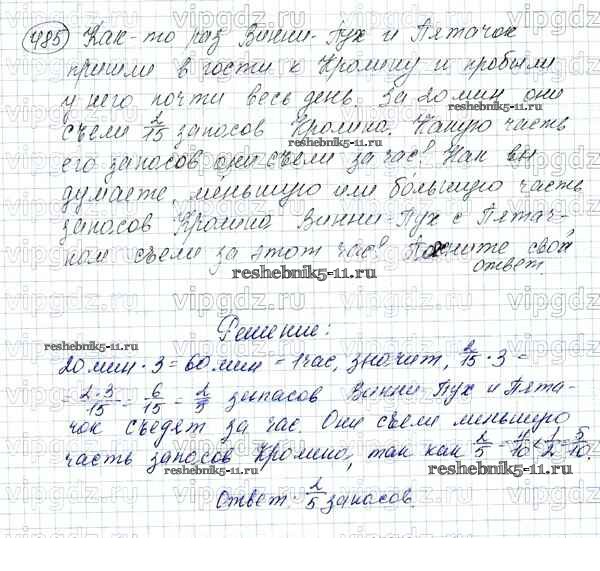 485 Как-то раз Винни-Пух и Пятачок
пришли в гости к Кролику и пробыли
у него почти весь день. За 20 мин они
съели 2/15 запасов Кролика. Какую часть
его запасов они съели за час? Как вы
думаете, меньшую или бо́льшую часть
запасов Кролика Винни-Пух с Пятач-
ком съели за этот час? Поясните свой
ответ
reshebnik5-11.ru
Решение:
20 мин · 3 = 60 мин = 1 час, значит, 2/15 · 3 =
= 2·3/15 = 6/15 = 2/5 запасов Винни Пух и Пята-
чок съедят за час. Они съели меньшую
часть запасов Кролика, так как 2/5 = 4/10 < 1/2 = 5/10.
Ответ: 2/5 запасов.
reshebnik5-11.ru
reshebnik5-11.ru
reshebnik5-11.ru
vipgdz.ru